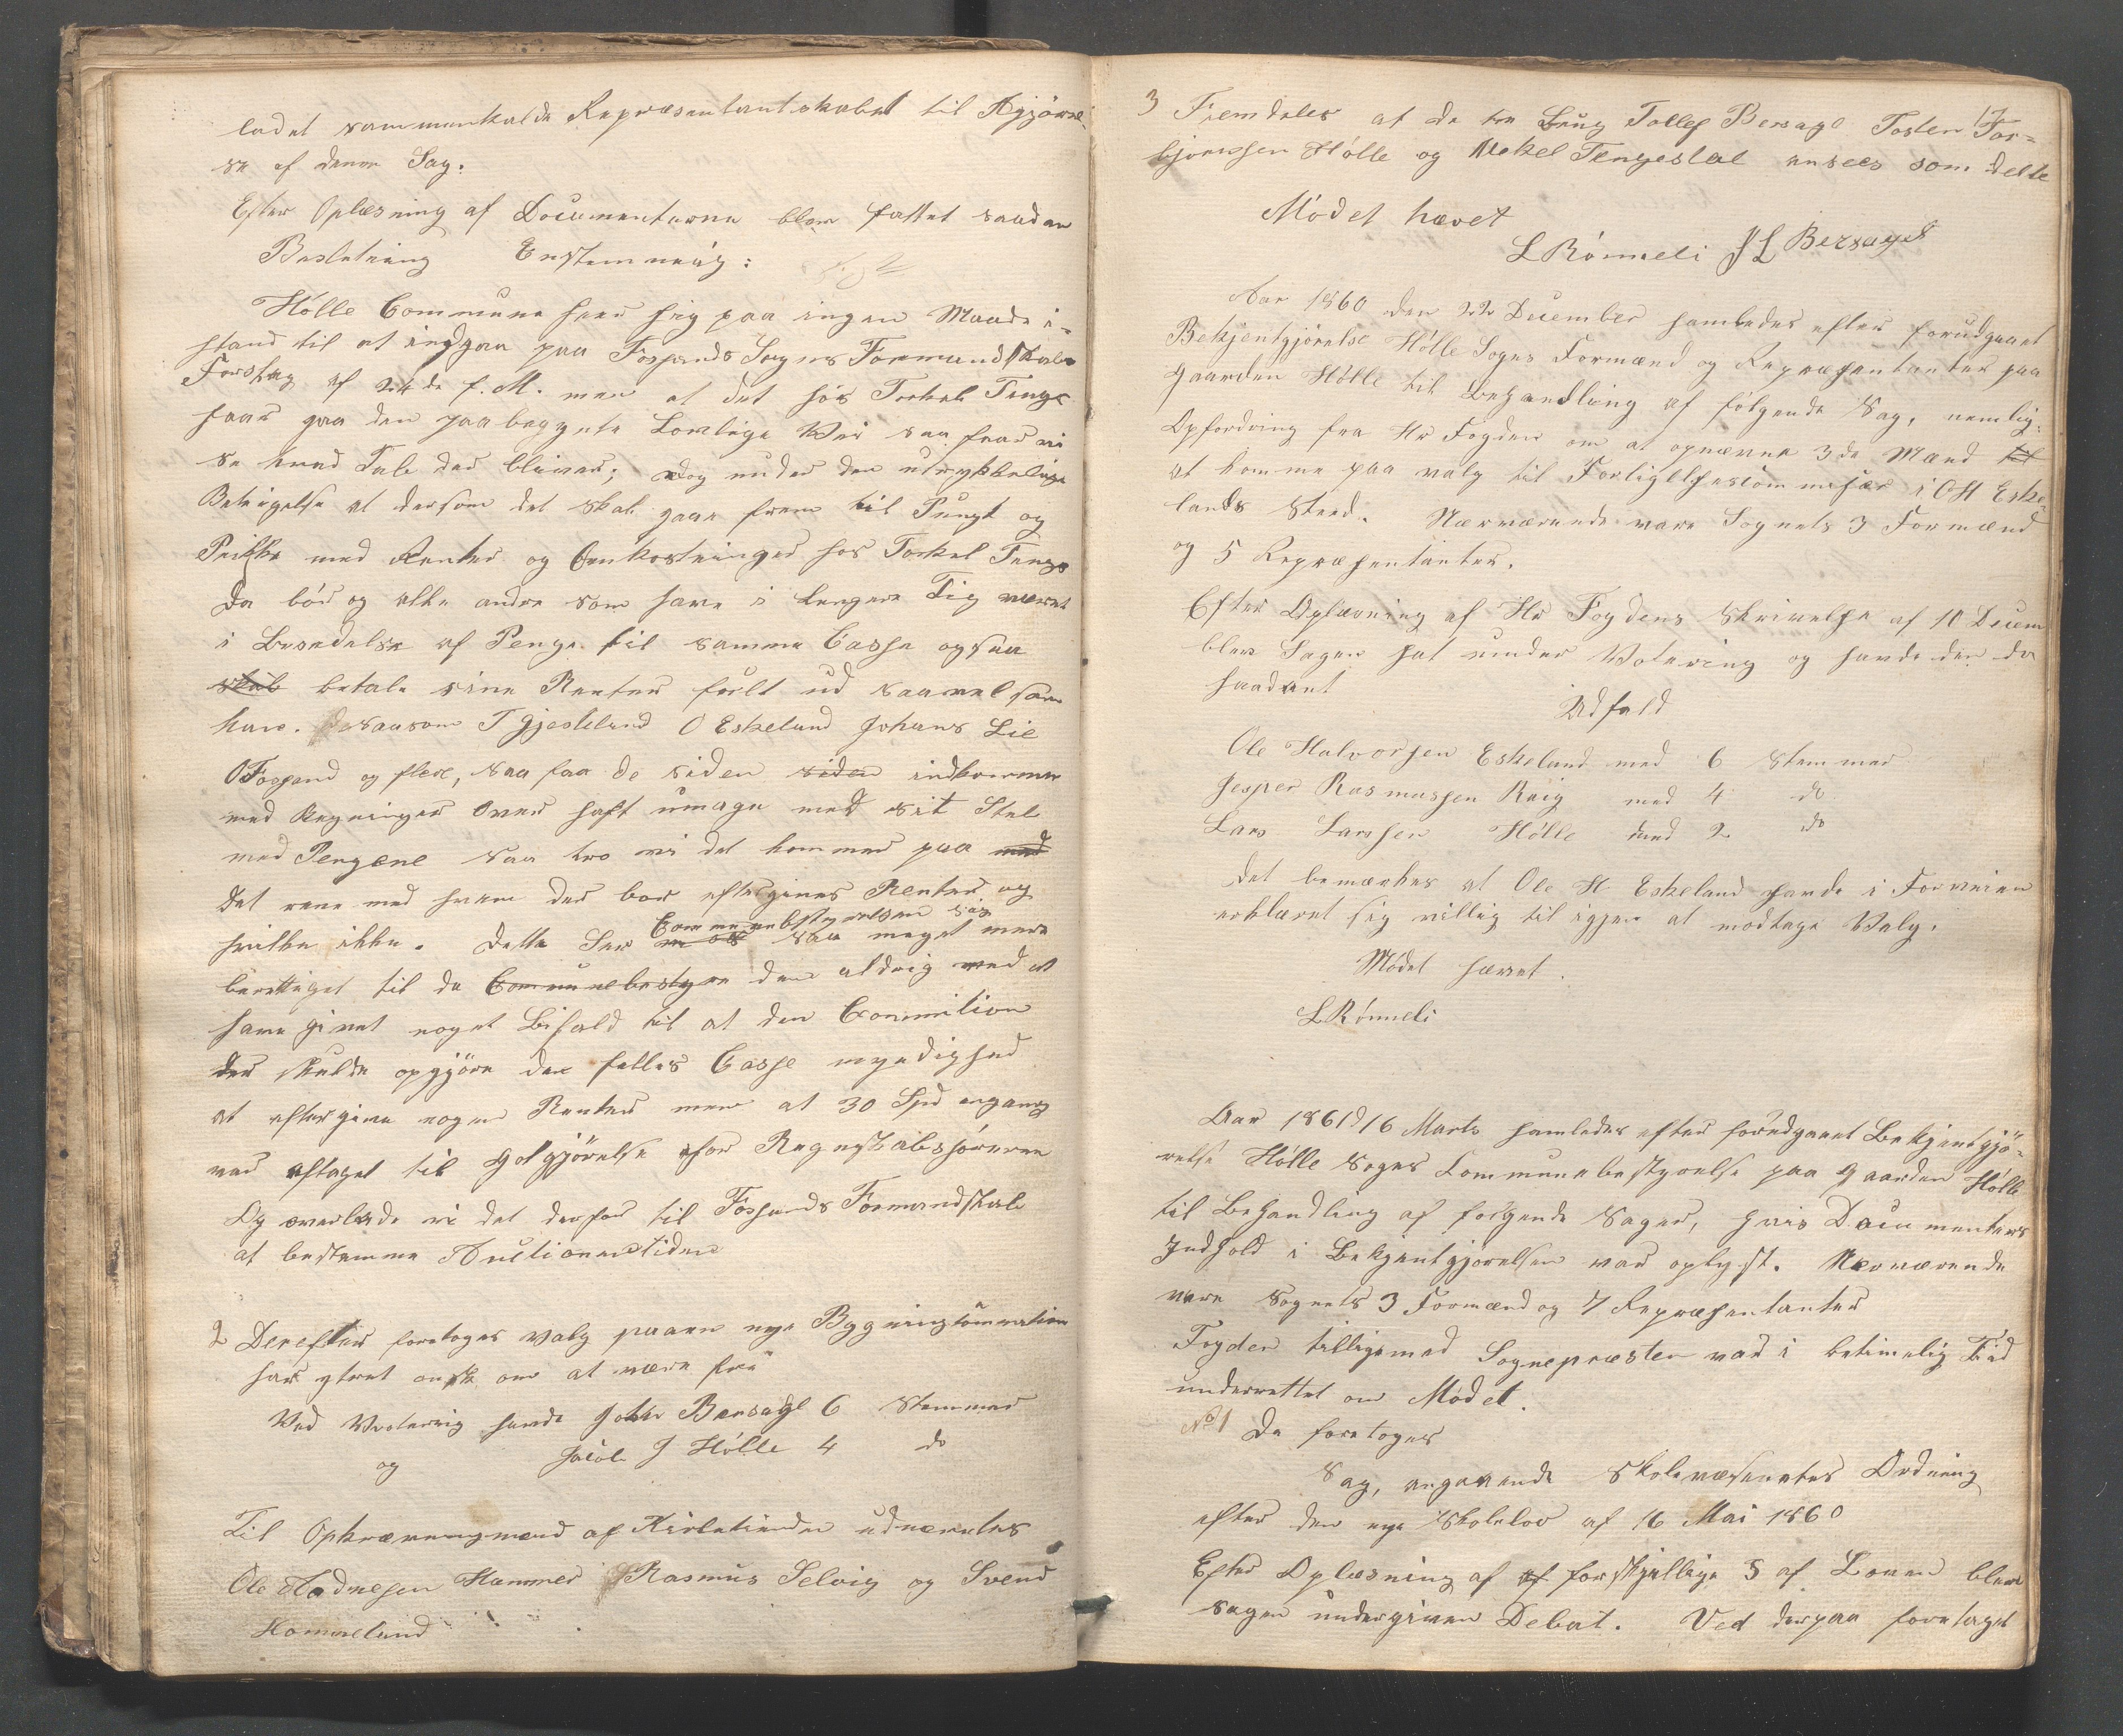 ladet sammenkalde Repræsentantskabet til Afgjörel-
se af denne Sag.
Efter Oplæsning af Documenterne blev fattet saadan
Beslutning Enstemmig:
Hölle Commune seer sig paa ingen Maade i-
stand til at indgaa paa Fossands Sogns Formandskabs
Forslag af 24de f. M. men at det hos Torkel Tenge
faar gaa den paabegynte Lovlige Vei saa faar vi
se hvad Tab der bliver; dog under den udtrykkelige
Betingelse at dersom det skal gaae frem til Pungt og
Prikke med Renter og Omkostninger hos Torkel Tenge
da bör og alle andre som have i lengere Tig været
i Besedelse af Penge til samme Casse ogsaa
skal betale sine Renter fuldt ud saavel som
han. saasom T Gjeskeland O Eskeland Johans Lie
O Fossand og flere, saa faa de siden siden indkomme
med Regninger over haft umage med sit Stel
med Pengene saa tro vi det kommer paa med
det rene med hvem der bør eftergives Renter og
hvilke ikke. Dette Ser Communebestyrelsen sig saa meget mere
berettiget til da Communebestyre den aldrig ved at
have givet noget Bifald til at den Committion
der skulde opgjöre den felles Casse myndighed
at eftergive nogen Renter men at 30 Spd engang
var aftaget til Gotgjörelse for Regnskabsföreren
Og overlade vi det derfor til Fossands Formandskab
at bestemme Auctionens tiden
2 Derefter foretoges Valg paa en nye Bygningscommission
har ytret önsk om at være fri
Ved Votering havde John Bersagel 6 Stemmer
og Jacob J Hölle 4 do
Til Opkrævningmænd af Kirketienden udnævntes
Ole Aadnesen Hammer Rasmus Selvig og Svend
Hommeland
17
3 Fremdeles at de tre Lrug Tollef Bersage Tosten Tor-
bjornsen Hölle og Mekel Tengesdal ansees som delte
Mödet hævet
L Rönneli J L Bersagel
Aar 1860 den 22 December samledes efter forudgaaet
Bekjentgjörelse Hölle Sogns Formænd og Repræsentanter paa
Gaarden Hölle til Behandling af fölgende Sag, nemlig:
Opfordring fra Hr Fogden om at opnævne 3de Mænd til
at komme paa valg til Forligelsescommissær i O H Eske-
lands Sted. Nærværende vare Sognets 3 Formænd
og 5 Repræsentanter.
Efter Oplæsning af Hr Fogdens Skrivelse af 11 Decem
blev Sagen sat under Votering og havde den da
saadant
Udfald
Ole Halvorsen Eskeland med 6 Stemmer
Jesper Rasmussen Raig med 4 do
Lars Larssen Hölle med 2 do
Det bemærkes at Ole H Eskeland havde i Forveien
erklæret sig villig til igjen at modtage Valg.
Mödet hævet.
L Rönneli
Aar 1861 d 16 Marts samledes efter forudgaaet Bekjentgjö-
relse Hölle Sogns Communebestyrelse paa Gaarden Hölle
til Behandling af fölgende Sager, hvis Documenters
Indhold i Bekjentgjorelsen var oplyst. Nærværende
vare Sognets 3 Formænd og 7 Repræsentanter
Fogden tilligemed Sognepræsten var i betimelig Tid
underrettet om Mödet.
No 1 Da foretoges
Sag, angaaende Skolevæsenets Ordning
efter den nye Skolelov af 16 Mai 1860
Efter Oplæsning af af forskjellige § af Loven blev
Sagen undergiven Debat. Ved derpaa foretaget